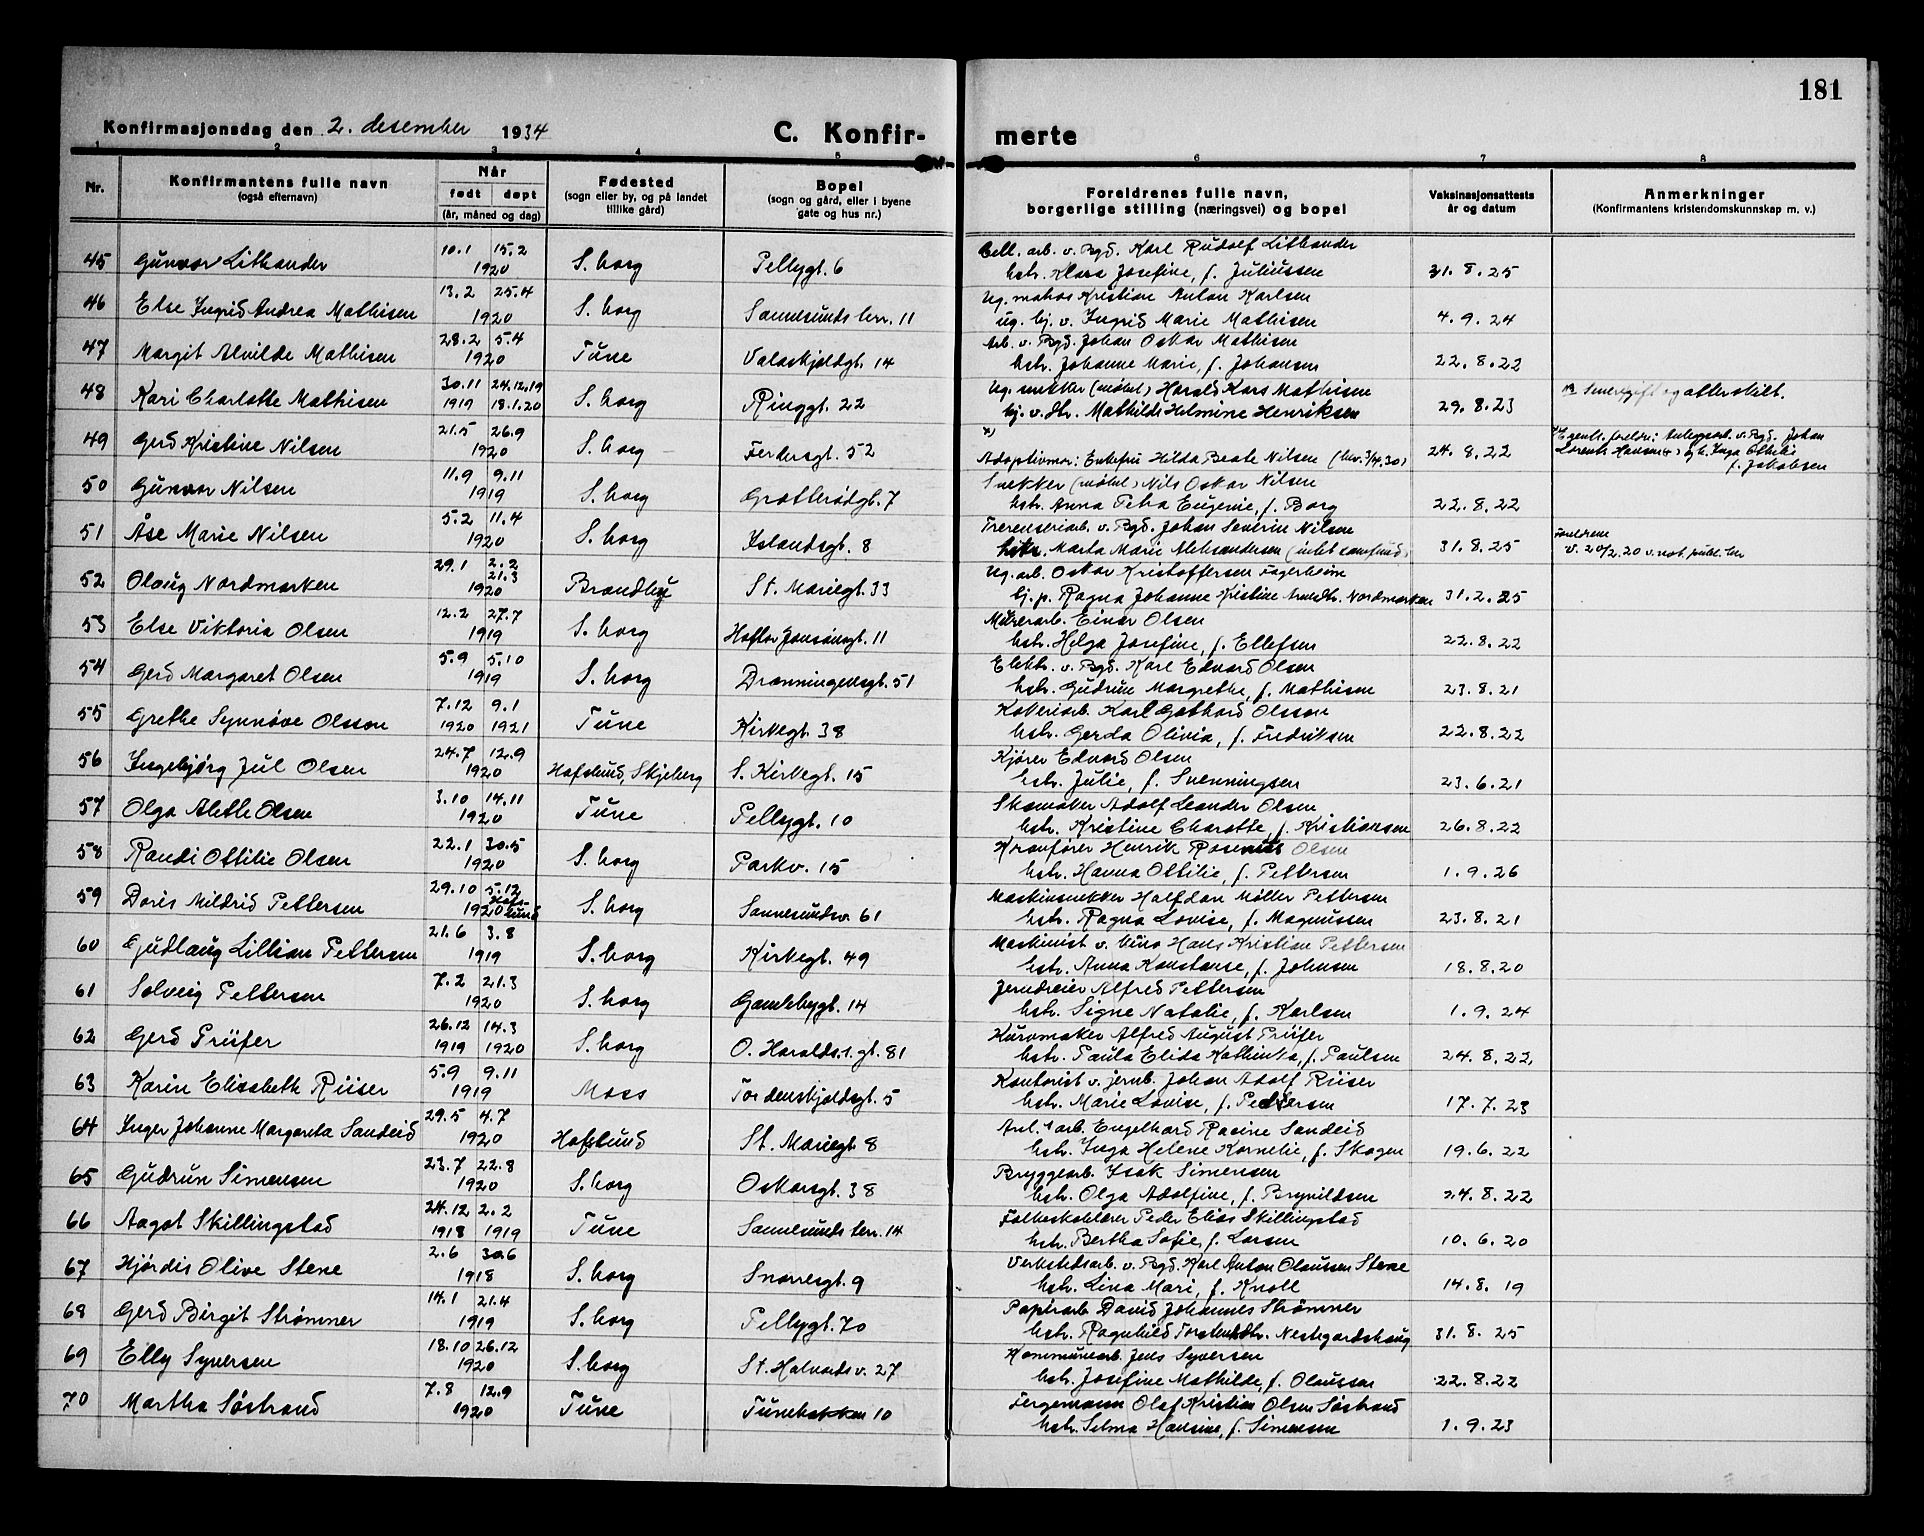 181
Konfirmasjonsdag den 2. desember 1934 C. Konfir- merte
1 2 3 4 5 6 7 8
Nr. Konfirmantens fulle navn (også efternavn) Når født døpt (år, måned og dag) Fødested (sogn eller by, og på landet tillike gård) Bopel (sogn og gård, eller i byene gate og hus nr.) Foreldrenes fulle navn, borgerlige stilling (næringsvei) og bopel Vaksinasjonsattests år og datum Anmerkninger (Konfirmantens kristendomskunnskap m. v.)
45 Gunvor Lithander 10.1 15.2 1920 S.borg Pellygt. 6 Cell. arb. v. Bgd. Karl Rudolf Lithander
hstr. Klara Josefine, f. Juliussen 31.8.25
46 Else Ingrid Andrea Mathisen 13.2 25.4 1920 S.borg Sannesunds terr. 11 Ug. matros Kristian Anton Karlsen
ug. bj. v. Ingrid Marie Mathisen 4.9.24
47 Margit Alvilde Mathisen 28.2 5.4 1920 Tune Valaskjoldgt. 14 Arb. v. Bgd. Johan Oskar Mathisen
hstr. Johanne Marie, f. Johansen 22.8.22
48 Kari Charlotte Mathisen 30.11 1919 24.12.19 18.1.20 S.borg Ringgt. 22 Ug. snekker (møbel) Harald Lars Mathisen
bj. v. Str. Mathilde Helmine Henriksen 29.8.23 Senere gift og atter skilt.
49 Gerd Kristine Nilsen 21.5 26.9 1920 S.borg Ferdersgt. 52 x)
Adoptivmor: Enkefru Hilda Beate Nilsen (bev. 3/4.30) 24.8.22 x) Egentl. foreldre: Anleggsarb. v. Bgd. Johan
Lorents Hansen og h. Inga Othilie
f. Jakobsen
50 Gunvor Nilsen 11.9 9.11 1919 S.borg Grotterødgt. 7 Snekker (møbel) Nils Oskar Nilsen
hstr. Anna Petra Eugenie, f. Borg 22.8.22
51 Åse Marie Nilsen 5.2 11.4 1920 S.borg Islandsgt. 8 Treresteriarb. v. Bgd. Johan Severin Nilsen
hstr. Marta Marie Aleksandersen (intet samfund) 31.8.25 Foreldrene
v. 20/2.20 v. not. publ. her
52 Olaug Nordmarken 29.1 2.2 21.3 1920 Brandbu St. Mariegt. 33 Ug. arb. Oskar Kristoffersen Fagerheim
bj. p. Ragna Johanne Kristine Arnedtr. Nordmarken 31.2.25
53 Else Viktoria Olsen 12.2 27.7 1919 S.borg Haftor Jonssønsgt. 11 Murerarb. Einar Olsen
hstr. Helga Josefine, f. Ellefsen 22.8.22
54 Gerd Margaret Olsen 5.9 5.10 1919 S.borg Dronningensgt. 51 Elektr. v. Bgd. Karl Edvard Olsen
hstr. Gudrun Margrethe, f. Mathisen 23.8.21
55 Grethe Synnøve Olsson 7.12 1920 9.1 1921 Tune Kirkegt. 38 Kokeriarb. Karl Gothard Olsson
hstr. Gerda Olivia, f. Fredriksen 22.8.22
56 Ingebjørg Jul Olsen 24.7 12.9 1920 Hafslund, Skjeberg S. Kirkegt. 15 Kjører Edvard Olsen
hstr. Julie, f. Svenningsen 23.6.21
57 Olga Alethe Olsen 3.10 14.11 1920 Tune Pellygt. 10 Skomaker Adolf Leander Olsen
hstr. Kristine Charotte, f. Kristiansen 26.8.22
58 Randi Ottilie Olsen 22.1 30.5 1920 S.borg Parkv. 15 Kranfører Henrik Rosenius Olsen
hstr. Hanna Ottilie, f. Pettersen 1.9.26
59 Doris Mildrid Pettersen 29.10 5.12 1920 Hafslund S.borg Sannesundsv. 61 Maskinsnekker Halfdan Møller Pettersen
hstr. Ragna Lovise, f. Magnussen 23.8.21
60 Gudlaug Lillian Pettersen 21.6 3.8 1919 S.borg Kirkegt. 49 Maskinist v. kino Hans Kristian Pettersen
hstr. Anna Konstanse, f. Johnsen 18.8.20
61 Solveig Pettersen 7.2 21.3 1920 S.borg Gamlebygt. 14 Jerndreier Alfred Pettersen
hstr. Signe Natalie, f. Karlsen 1.9.24
62 Gerd Prüfer 26.12 1919 14.3 1920 S.borg O. Haralds.s. gt. 81 Kurvmaker Alfred August Prüfer
hstr. Paula Elida Kathinka, f. Paulsen 24.8.22
63 Karin Elisabeth Riiser 5.9 9.11 1919 Moss Tordenskjoldsgt. 5 Kontorist v. jernb. Johan Adolf Riiser
hstr. Marie Lovise, f. Pedersen 17.7.23
64 Inger Johanne Margareta Sandeid 29.5 4.7 1920 Hafslund St. Mariegt. 8 Anl. arb. Engelhard Racine Sandeid
hstr. Inga Helene Kornelie, f. Skogen 19.6.22
65 Gudrun Simensen 23.7 22.8 1920 S.borg Oskarsgt. 38 Bryggearb. Isak Simensen
hstr. Olga Adolfine, f. Brynildsen 24.8.22
66 Aagot Skillingstad 24.12 1918 2.2 1919 Tune Sannesunds terr. 14 Folkeskolelærer Peder Elias Skillingstad
hstr. Bertha Sofie, f. Larsen 10.6.20
67 Hjördis Olive Stene 2.6 30.6 1918 S.borg Snorresgt. 9 Verkstedsarb. v. Bgd. Karl Anton Olaussen Stene
hstr. Lina Mari, f. Knoll 14.8.19
68 Gerd Birgit Strömner 14.1 21.4 1919 S.borg Pellygt. 70 Papirarb. David Johannes Strømner
hstr. Ragnhild Torstensdtr. Nestegardshaug 31.8.25
69 Elly Syversen 18.10 26.12 1920 S.borg St. Halvardsv. 27 Kommunearb. Jens Syversen
hstr. Josefine Mathilde, f. Olaussen 22.8.22
70 Martha Söstrand 7.8 12.9 1920 Tune Tunebakken 10 Fergemann Olaf Kristian Olsen Söstrand
hstr. Selma Hansine, f. Simensen 1.9.23